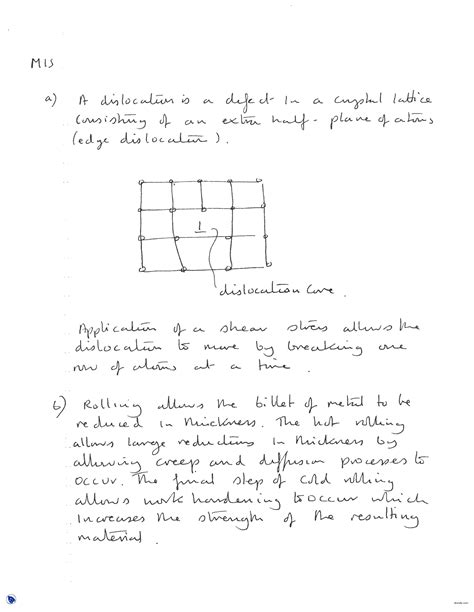 M15
a) A dislocation is a defect in a crystal lattice
consisting of an extra half-plane of atoms
(edge dislocation).
dislocation core.
Application of a shear stress allows the
dislocation to move by breaking one
row of atoms at a time.
b) Rolling allows the billet of metal to be
reduced in thickness. The hot rolling
allows large reductions in thickness by
allowing creep and diffusion processes to
occur. The final step of cold rolling
allows work hardening to occur which
increases the strength of the resulting
material.